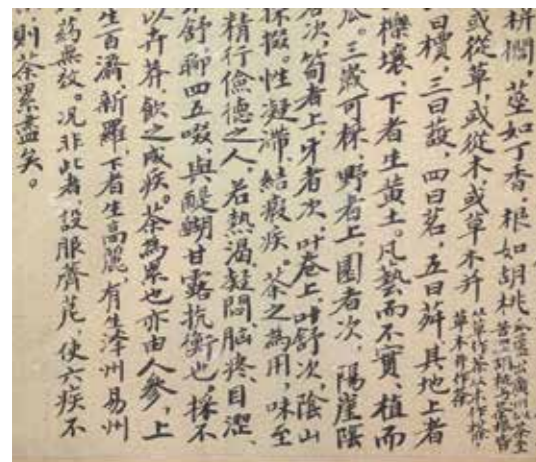 栟櫚,莖如丁香,根如胡桃
或從草,或從木,或草木并
草木并作荼
曰檟,三曰蔎,四曰茗,五曰荈,其地上者
櫟壤,下者生黃土。凡藝而不實,植而
瓜。三歲可採,野者上,園者次,陽崖陰
者次,筍者上,牙者次,叶卷上,叶舒次,陰山
採掇。性凝滯,結瘕疾。茶之為用,味至
精行儉德之人,若熱渴,凝悶,脑疼,目澀,
舒,聊四五啜,與醍醐甘露抗衡也,採不
以卉莽,飲之成疾。茶為累也亦由人參,上
生百濟新羅,下者生高麗,有生澤州易州
药無效。况非此者,設服薺苨,使六疾不
則茶累盡矣。